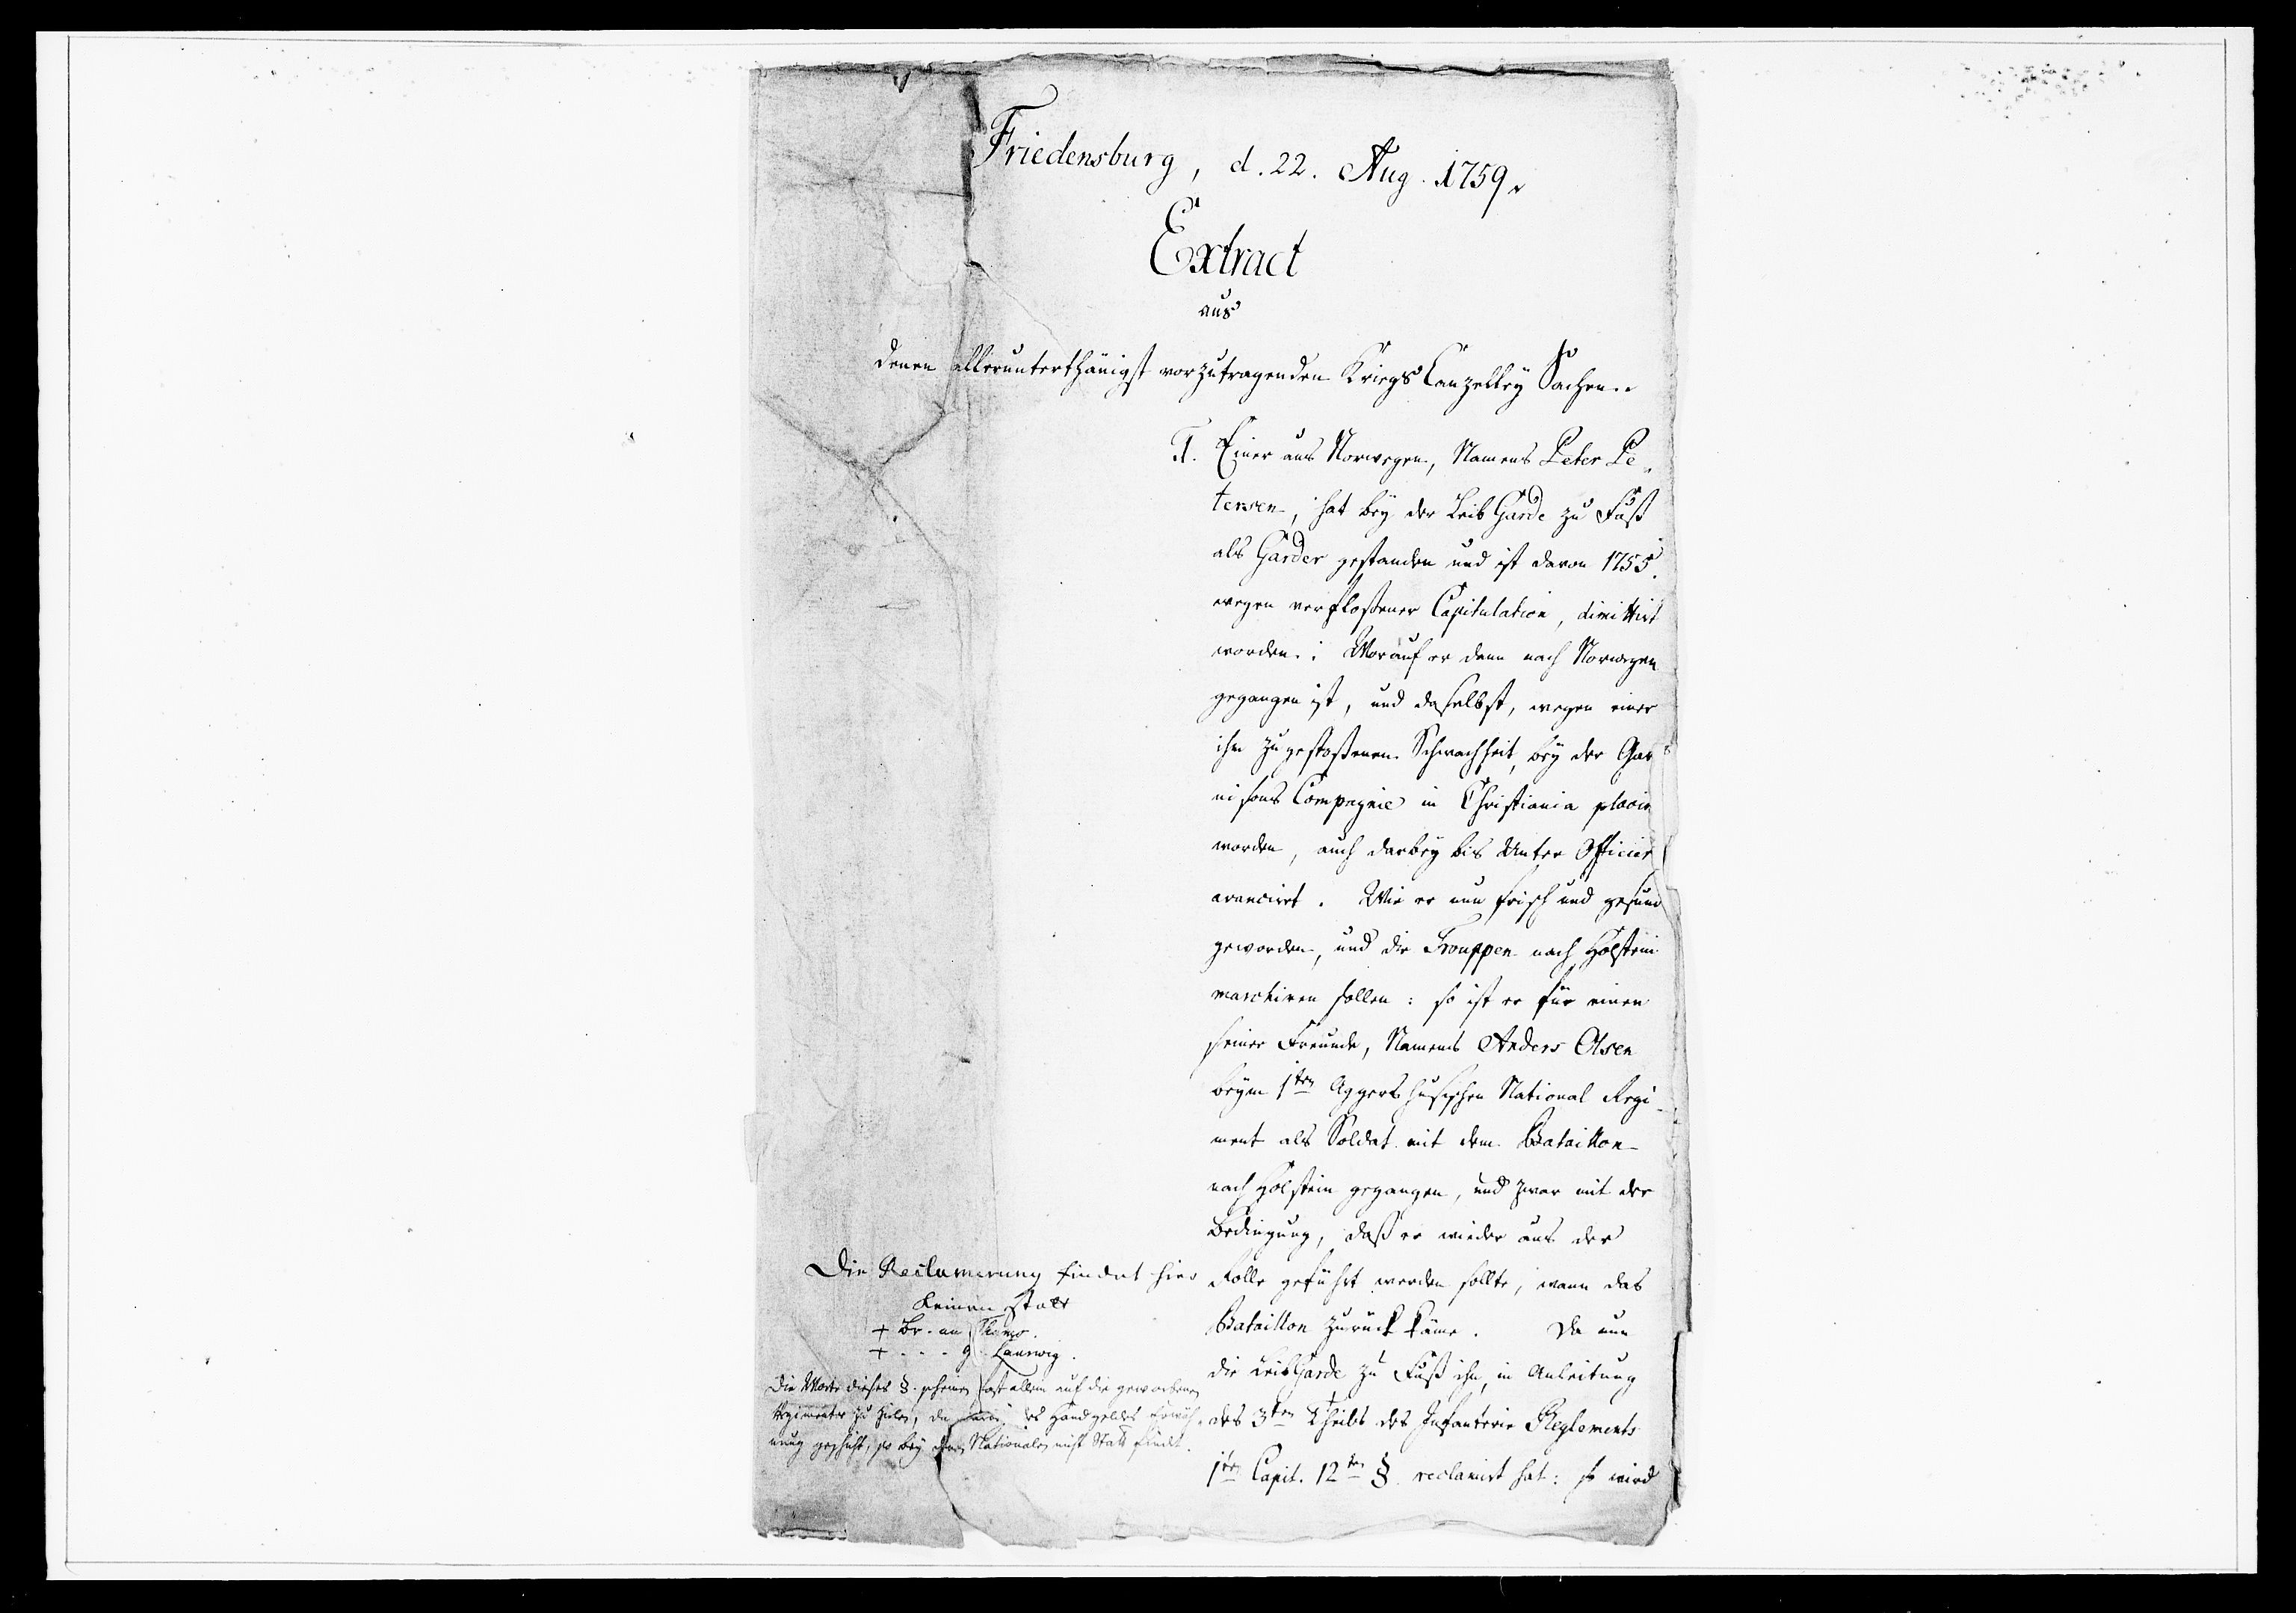 Friedensburg, d. 22. Aug. 1759.
Extract
aus
denen allerunterthänigst vorzutragenden Kriegs Canzelley Sachen.
1. Einer aus Norwegen, Namens Peter Pe-
tersen, hat bey der Leib Garde zu Fuß
als Garder gestanden und ist davon 1755.
wegen verfloßener Capitulation, dimittirt
worden: Worauf er denn nach Norwegen
gegangen ist, und daselbst, wegen einer
ihm zugestoßenen Schwachheit, bey der Gar
nisons Compagnie in Christiania placir
worden, auch darbey bis Unter Officier
avancirt. Wie er nun frisch und gesund
geworden, und die Trouppen nach Holstein
marchiren sollen: so ist er für einen
seiner Freunde, Namens Anders Olsen
beym 1ten Aggershusischen National Regi-
ment als Soldat mit dem Bataillon
nach Holstein gegangen, und zwar mit der
Bedingung, daß er wieder aus der
Rolle geführt werden sollte, wann das
Bataillon zurück käme. Da nun
die Leib Garde zu Fuß ihn, in Anleitung
des 3ten Theils des Infanterie Reglements
1ten Capit. 12ten §. reclamirt hat: so wird
Die Reclamerung findet hier
keinen statt
+ Br. an
+ . . . g. Laurwig.
Die Worte dieses §. scheinen fast allein auf die geworbenen
Regimenter zu zielen, da des Handgeldes Erwäh-
nung geschicht, so bey denen Nationalen nicht Statt findet.